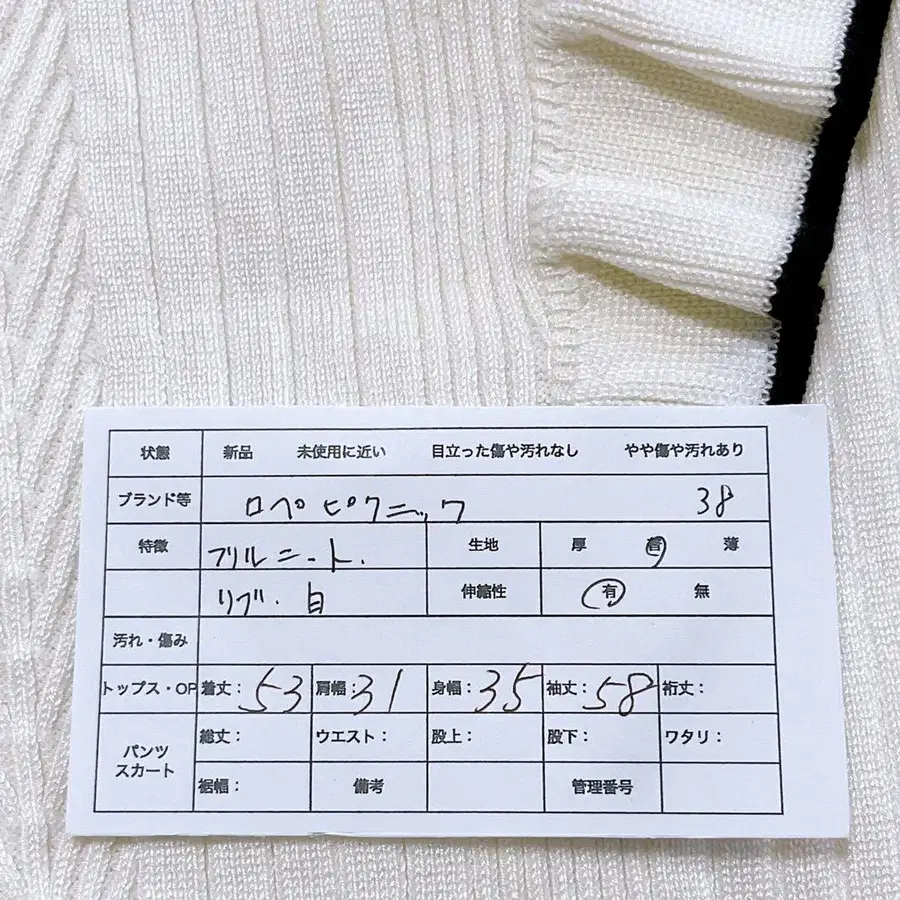 状態 新品 未使用に近い 目立った傷や汚れなし やや傷や汚れあり
ブランド等 ロペピクニック 38
特徴 フリルニート. 生地 厚 普 薄
リブ・白 伸縮性 有 無
汚れ・傷み
トップス・OP 着丈:53 肩幅:31 身幅:35 袖丈:58 裄丈:
パンツ スカート 総丈: ウエスト: 股上: 股下: ワタリ:
裾幅: 備考 管理番号